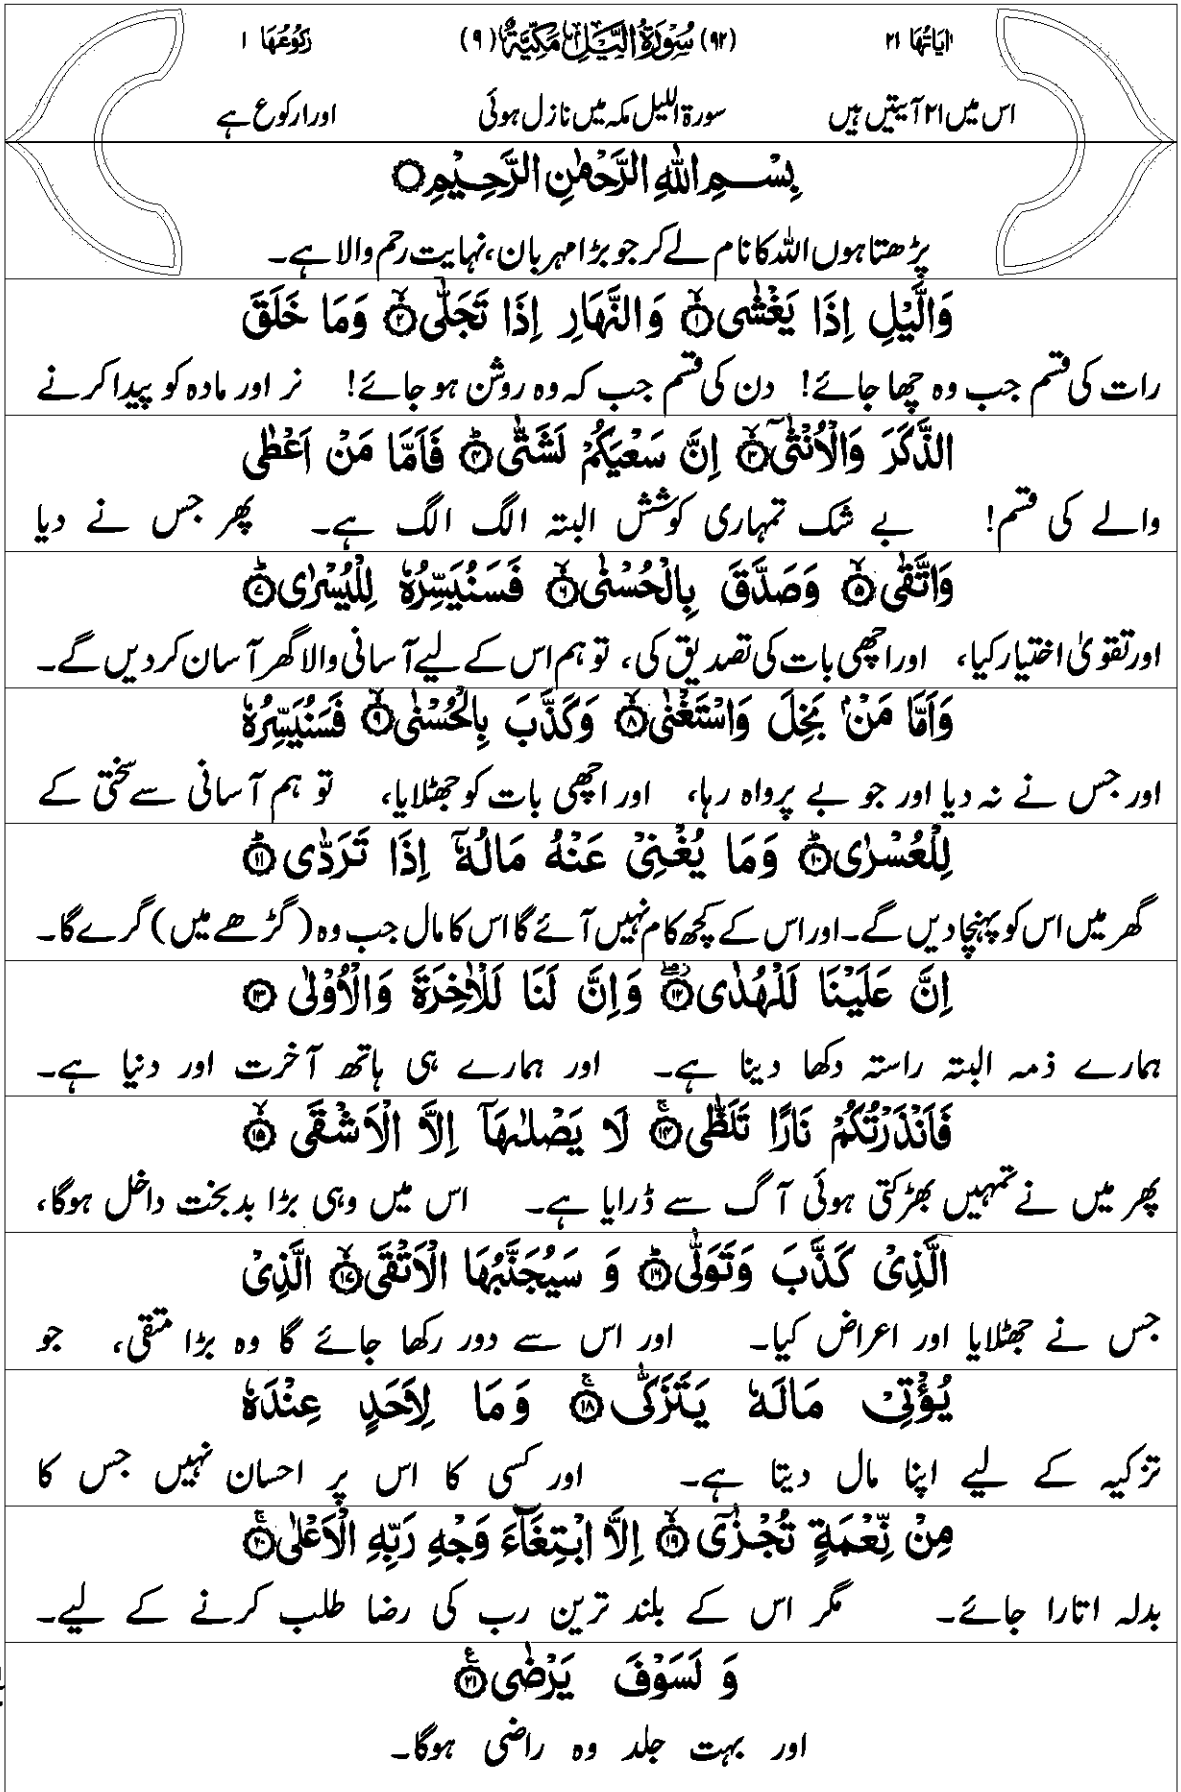 اٰيَاتُهَا ٢١ (٩٢) سُوْرَةُ الَّيْلِ مَكِّيَّةٌ (٩) رُكُوْعُهَا ١
اس میں ۲۱ آیتیں ہیں سورۃ اللیل مکہ میں نازل ہوئی اور ۱ رکوع ہے
بِسْمِ اللّٰهِ الرَّحْمٰنِ الرَّحِيْمِ
پڑھتا ہوں اللہ کا نام لے کر جو بڑا مہربان، نہایت رحم والا ہے۔
وَالَّيْلِ اِذَا يَغْشٰى ۙ‏﴿۱﴾ وَالنَّهَارِ اِذَا تَجَلّٰى ۙ‏﴿۲﴾ وَمَا خَلَقَ
رات کی قسم جب وہ چھا جائے! دن کی قسم جب کہ وہ روشن ہو جائے! نر اور مادہ کو پیدا کرنے
الذَّكَرَ وَالْاُنْثٰٓى ۙ‏﴿۳﴾ اِنَّ سَعْيَكُمْ لَشَتّٰى ؕ‏﴿۴﴾ فَاَمَّا مَنْ اَعْطٰى
والے کی قسم! بے شک تمہاری کوشش البتہ الگ الگ ہے۔ پھر جس نے دیا
وَاتَّقٰى ۙ‏﴿۵﴾ وَصَدَّقَ بِالْحُسْنٰى ۙ‏﴿۶﴾ فَسَنُيَسِّرُهٗ لِلْيُسْرٰى ؕ‏﴿۷﴾
اور تقویٰ اختیار کیا، اور اچھی بات کی تصدیق کی، تو ہم اس کے لیے آسانی والا گھر آسان کر دیں گے۔
وَاَمَّا مَنْۢ بَخِلَ وَاسْتَغْنٰى ۙ‏﴿۸﴾ وَكَذَّبَ بِالْحُسْنٰى ۙ‏﴿۹﴾ فَسَنُيَسِّرُهٗ
اور جس نے نہ دیا اور جو بے پرواہ رہا، اور اچھی بات کو جھٹلایا، تو ہم آسانی سے سختی کے
لِلْعُسْرٰى ؕ‏﴿۱۰﴾ وَمَا يُغْنِىْ عَنْهُ مَالُهٗۤ اِذَا تَرَدّٰى ؕ‏﴿۱۱﴾
گھر میں اس کو پہنچا دیں گے۔ اور اس کے کچھ کام نہیں آئے گا اس کا مال جب وہ (گڑھے میں) گرے گا۔
اِنَّ عَلَيْنَا لَلْهُدٰى ۖ‏﴿۱۲﴾ وَاِنَّ لَنَا لَلْاٰخِرَةَ وَالْاُوْلٰى ﴿۱۳﴾
ہمارے ذمہ البتہ راستہ دکھا دینا ہے۔ اور ہمارے ہی ہاتھ آخرت اور دنیا ہے۔
فَاَنْذَرْتُكُمْ نَارًا تَلَظّٰى ۚ‏﴿۱۴﴾ لَا يَصْلٰىهَاۤ اِلَّا الْاَشْقَى ۙ‏﴿۱۵﴾
پھر میں نے تمہیں بھڑکتی ہوئی آگ سے ڈرایا ہے۔ اس میں وہی بڑا بدبخت داخل ہوگا،
الَّذِىْ كَذَّبَ وَتَوَلّٰى ؕ‏﴿۱۶﴾ وَ سَيُجَنَّبُهَا الْاَتْقَى ۙ‏﴿۱۷﴾ الَّذِىْ
جس نے جھٹلایا اور اعراض کیا۔ اور اس سے دور رکھا جائے گا وہ بڑا متقی، جو
يُؤْتِىْ مَالَهٗ يَتَزَكّٰى ۚ‏﴿۱۸﴾ وَمَا لِاَحَدٍ عِنْدَهٗ
تزکیہ کے لیے اپنا مال دیتا ہے۔ اور کسی کا اس پر احسان نہیں جس کا
مِنْ نِّعْمَةٍ تُجْزٰٓى ۙ‏﴿۱۹﴾ اِلَّا ابْتِغَآءَ وَجْهِ رَبِّهِ الْاَعْلٰى ۚ‏﴿۲۰﴾
بدلہ اتارا جائے۔ مگر اس کے بلند ترین رب کی رضا طلب کرنے کے لیے۔
وَ لَسَوْفَ يَرْضٰى ﴿۲۱﴾
اور بہت جلد وہ راضی ہوگا۔